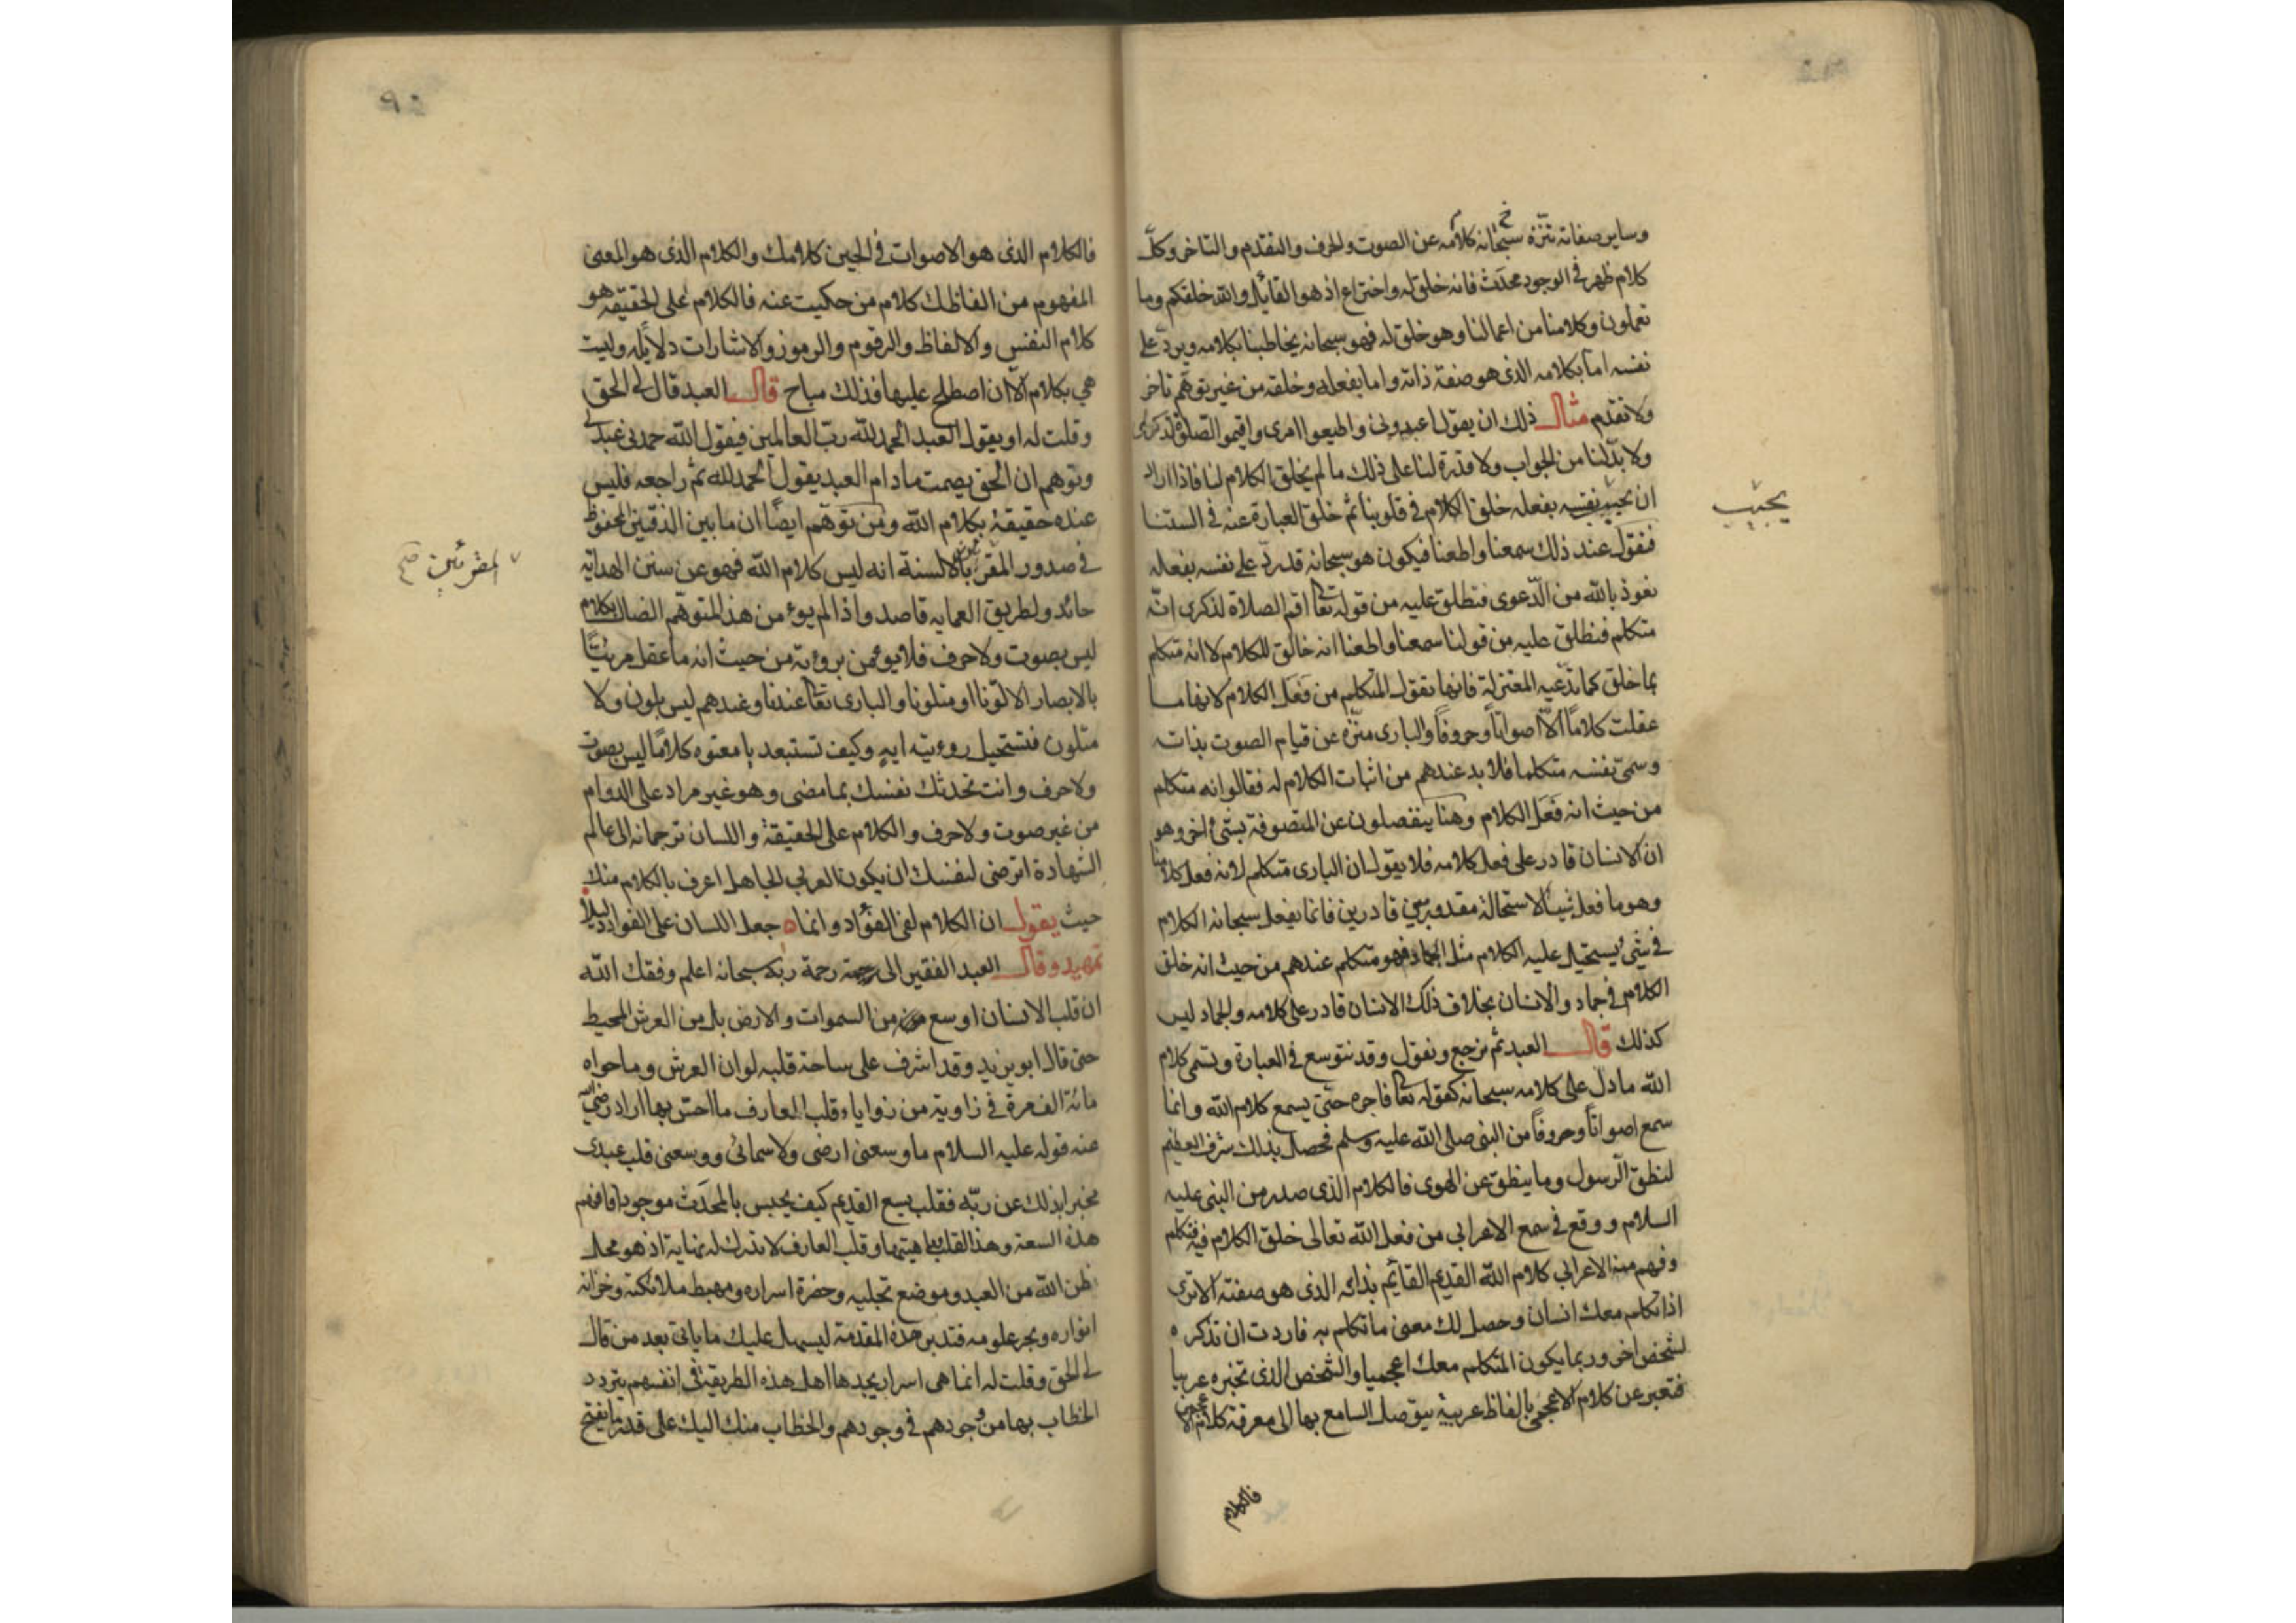 وساير صفاته تنزه سبحانه كلامه عن الصوت والحرف والتقدم والتاخر وكل
كلام ظهر في الوجود محدث فانه خلق له واختراع اذ هو القايل والله خلقكم وما
تعملون وكلامنا من اعمالنا وهو خلق له فهو سبحانه يخاطبنا بكلامه ويرد على
نفسه اما بكلامه الذى هو صفة ذاته واما بفعله وخلقه من غير توهم تاخر
ولا تقدم مثال ذلك ان يقول اعبدونى واطيعوا امرى واقيموا الصلوة لذكرى
ولا بد لنا من الجواب ولا قدرة لنا على ذلك ما لم يخلق الكلام لنا فاذا اراد
ان يجيب نفسه بفعله خلق الكلام في قلوبنا ثم خلق العبارة عنه في السنتنا
يجيب
فنقول عند ذلك سمعنا واطعنا فيكون هو سبحانه قد رد على نفسه بفعله
نعوذ بالله من الدعوى فنطلق عليه من قوله تعا اقم الصلاة لذكرى انه
متكلم فنطلق عليه من قولنا سمعنا واطعنا انه خالق للكلام لا انه متكلم
بما خلق كما تدعيه المعتزلة فانها تقول المتكلم من فعل الكلام لانها ما
عقلت كلاما الا اصواتا وحروفا والبارى منزه عن قيام الصوت بذاته
وسمى نفسه متكلما فلا بد عندهم من اثبات الكلام له فقالوا انه متكلم
من حيث انه فعل الكلام وهنا ينفصلون عن المتصوفة بشئ اخر وهو
ان الانسان قادر على فعل كلامه فلا يقول ان البارى متكلم لانه فعل كلامنا
وهو ما فعل شيئا لاستحالة مقدور بين قادرين فانما يفعل سبحانه الكلام
في شئ يستحيل عليه الكلام مثل الجماد فهو متكلم عندهم من حيث انه خلق
الكلام في جماد والانسان بخلاف ذلك الانسان قادر على كلامه والجماد ليس
كذلك قال العبد ثم نرجع ونقول وقد نتوسع في العبارة ونسمى كلام
الله ما دل على كلامه سبحانه كقوله تعا فاجره حتى يسمع كلام الله وانما
سمع اصواتا وحروفا من النبى صلى الله عليه وسلم فحصل بذلك شرف العظيم
لنطق الرسول وما ينطق عن الهوى فالكلام الذى صدر من النبى عليه
السلام ووقع في سمع الاعرابى من فعل الله تعالى خلق الكلام فيه فتكلم
وفهم منه الاعرابى كلام الله القديم القائم بذاته الذى هو صفته الا ترى
اذا تكلم معك انسان وحصل لك معنى ما تكلم به فاردت ان تذكره
لشخص اخر وربما يكون المتكلم معك اعجميا والشخص الذى تخبره عربيا
فتعبر عن كلام الاعجمى بالفاظ عربية يتوصل السامع بها الى معرفة كلام الاعجمى
فالكلام
فالكلام الذى هو الاصوات في الحين كلامك والكلام الذى هو المعنى
المفهوم من الفاظك كلام من حكيت عنه فالكلام على الحقيقة هو
كلام النفس والالفاظ والرقوم والرموز والاشارات دلايله وليست
هي بكلام الا ان اصطلح عليها فذلك مباح قال العبد قال لى الحق
وقلت له او يقول العبد الحمد لله رب العالمين فيقول الله حمدنى عبدى
وتوهم ان الحق يصمت ما دام العبد يقول الحمد لله ثم راجعه فليس
عنده حقيقة بكلام الله ومن توهم ايضا ان ما بين الدفتين المحفوظ
في صدور المقر بالالسنة انه ليس كلام الله فهو عن سنن الهداية
المقرئين صح
حائد ولطريق العماية قاصد واذا لم يوء من هذا المتوهم الضال بكلام
ليس بصوت ولا حرف فلا يومن بروءية من حيث انه ما عقل مرئيا
بالابصار الا لونا او متلونا والبارى تعا عندنا وعندهم ليس بلون ولا
متلون فتستحيل روءيته ايه وكيف تستبعد يا معتوه كلاما ليس بصوت
ولا حرف وانت تحدثك نفسك بما مضى وهو غير مراد على الدوام
من غير صوت ولا حرف والكلام على الحقيقة واللسان ترجمانه الى عالم
الشهادة اترضى لنفسك ان يكون العربى الجاهل اعرف بالكلام منك
حيث يقول ان الكلام لفى الفؤاد وانما ه جعل اللسان على الفواد دليلا
تمهيد وقال العبد الفقير الى رحمة ربه سبحانه اعلم وفقك الله
ان قلب الانسان اوسع من السموات والارض بل من العرش المحيط
حتى قال ابو يزيد وقد اشرف على ساحة قلبه لو ان العرش وما حواه
مائة الف مرة في زاوية من زوايا قلب العارف ما احس بها اراد رضى الله
عنه قوله عليه السلام ما وسعنى ارضى ولا سمائى ووسعنى قلب عبدى
مخبرا بذلك عن ربه فقلب يسع القديم كيف يحس بالمحدث موجودا فافهم
هذه السعة وهذا القلب وقلب العارف لا تدرك له نهاية اذ هو محل
نظر الله من العبد وموضع تجليه وحضرة اسراره ومهبط ملائكته وخزانة
انواره وبحر علومه فتدبر هذه المقدمة ليسهل عليك ما ياتى بعد من قال
لى الحق وقلت له انما هى اسرار يجدها اهل هذه الطريقة في انفسهم يتردد
الخطاب بها من وجودهم في وجودهم والخطاب منك اليك على قدر ما يفتح